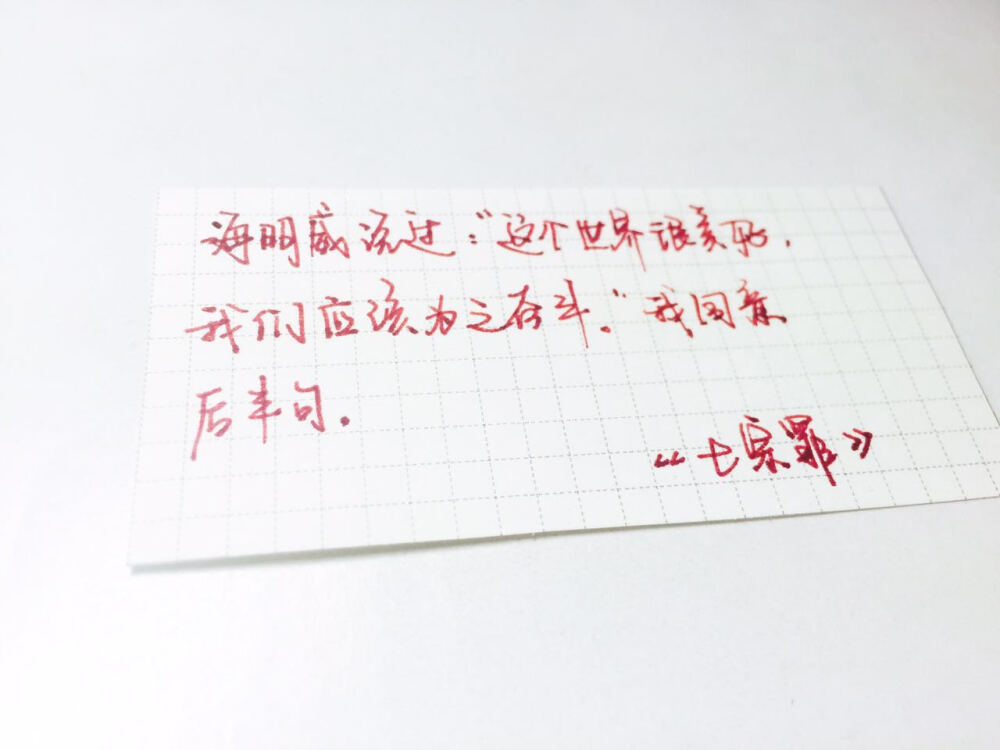 海明威说过：“这个世界很美好，
我们应该为之奋斗。”我同意
后半句。
《七宗罪》